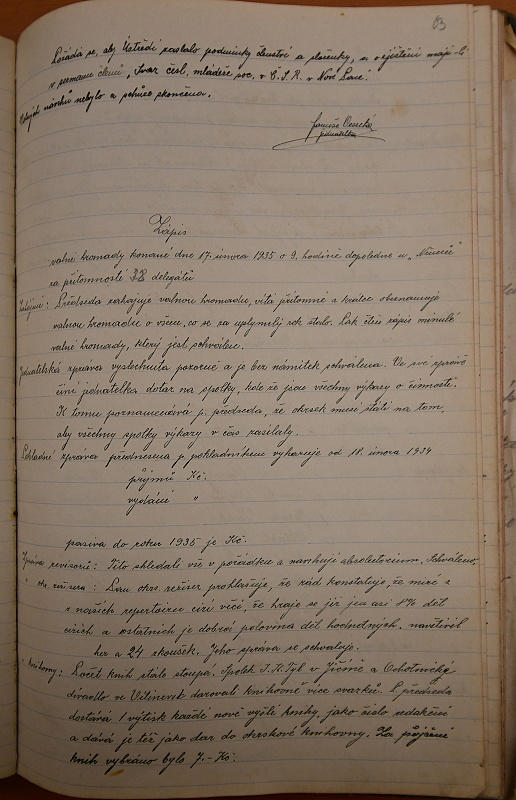 63
Požádá se, aby Ústředí zaslalo podmínky členství a složenky, a zjištění mají-li
v seznamu členů, Svaz čsl. mládeže soc. v Č.S.R. v Nové Pace.
návrhů nebylo a schůze skončena.
jednatelka
Zápis
valné hromady konané dne 17. února 1935 o 9. hodině dopoledne u „Němečků"
za přítomnosti 32 delegátů
Zahájení: Předseda zahajuje valnou hromadu, vítá přítomné a krátce obeznamuje
valnou hromadu o všem, co se za uplynulý rok stalo. Pak čten zápis minulé
valné hromady, který jest schválen.
Jednatelská zpráva vyslechnuta pozorně a je bez námitek schválena. Ve své zprávě
činí jednatelka dotaz na spolky, kde že jsou všechny výkazy o činnosti.
K tomu poznamenává p. předseda, že okrsek musí státi na tom,
aby všechny spolky výkazy v čas zasílaly.
Pokladní zpráva přednesena p. pokladníkem vykazuje od 18. února 1934
příjmů Kč.
vydání "
pasiva do roku 1935 je Kč.
Zpráva revisorů: Tito shledali vše v pořádku a navrhují absolutorium. Schváleno.
" okr. režiséra: Pan okrs. režisér prohlašuje, že rád konstatuje, že mizí s
z našich repertoirů cizí věci, že hraje se již jen asi 8% děl
cizích a ostatních je dobrá polovina děl hodnotných. Navštívil
her a 24 zkoušek. Jeho zpráva se schvaluje.
" knihovny: Počet knih stále stoupá. Spolek J.K.Tyl v Jičíně a Ochotnické
divadlo ve Vitiněvsi darovali knihovně více svazků. P. předseda
dostává 1 výtisk každé nově vyšlé knihy, jako číslo redakční
a dává je též jako dar do okrskové knihovny. Za půjčení
knih vybráno bylo 7.- Kč.